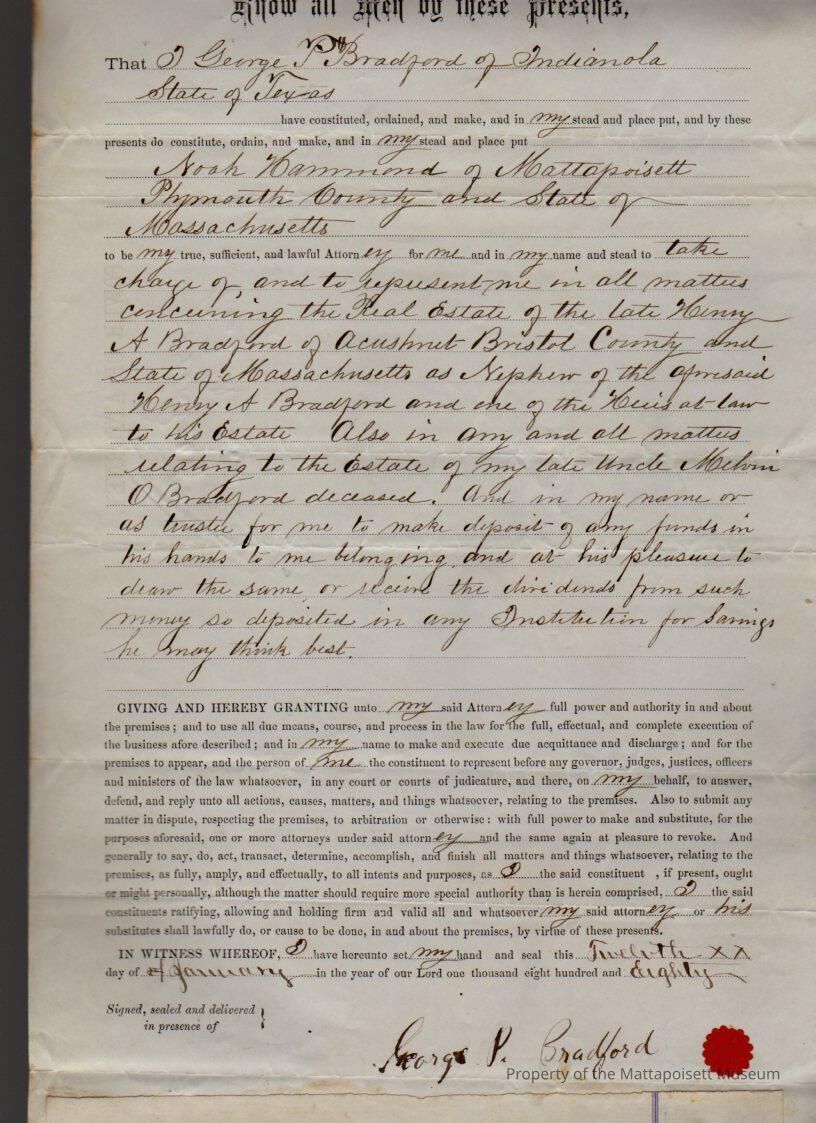 Know all Men by these Presents,
That I George P Bradford of Indianola
State of Texas
have constituted, ordained, and make, and in my stead and place put, and by these
presents do constitute, ordain, and make, and in my stead and place put
Noah Hammond of Mattapoisett
Plymouth County and State of
Massachusetts
to be my true, sufficient, and lawful Attorn ey for me and in my name and stead to take
charge of, and to represent me in all matters
concerning the Real Estate of the late Henry
A Bradford of Acushnet Bristol County and
State of Massachusetts as Nephew of the aforesaid
Henry A Bradford and one of the Heirs at law
to his Estate Also in any and all matters
relating to the Estate of my late Uncle Melvin
O Bradford deceased. And in my name or
as trustee for me to make deposit of any funds in
his hands to me belonging, and at his pleasure to
draw the same, or receive the dividends from such
money so deposited in any Institution for Savings
he may think best.
GIVING AND HEREBY GRANTING unto my said Attorn ey full power and authority in and about
the premises; and to use all due means, course, and process in the law for the full, effectual, and complete execution of
the business afore described; and in my name to make and execute due acquittance and discharge; and for the
premises to appear, and the person of me the constituent to represent before any governor, judges, justices, officers
and ministers of the law whatsoever, in any court or courts of judicature, and there, on my behalf, to answer,
defend, and reply unto all actions, causes, matters, and things whatsoever, relating to the premises. Also to submit any
matter in dispute, respecting the premises, to arbitration or otherwise: with full power to make and substitute, for the
purposes aforesaid, one or more attorneys under said attorn ey and the same again at pleasure to revoke. And
generally to say, do, act, transact, determine, accomplish, and finish all matters and things whatsoever, relating to the
premises, as fully, amply, and effectually, to all intents and purposes, as I the said constituent , if present, ought
or might personally, although the matter should require more special authority than is herein comprised, I the said
constituents ratifying, allowing and holding firm and valid all and whatsoever my said attorn ey or his
substitutes shall lawfully do, or cause to be done, in and about the premises, by virtue of these presents.
IN WITNESS WHEREOF, I have hereunto set my hand and seal this Twelvth XX
day of January in the year of our Lord one thousand eight hundred and Eighty
Signed, sealed and delivered }
in presence of
George P. Bradford
Property of the Mattapoisett Museum